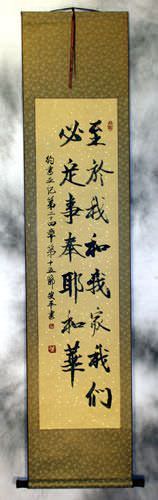 至於我和我家我们
必定事奉耶和華
約书亚记第二十四章第十五節